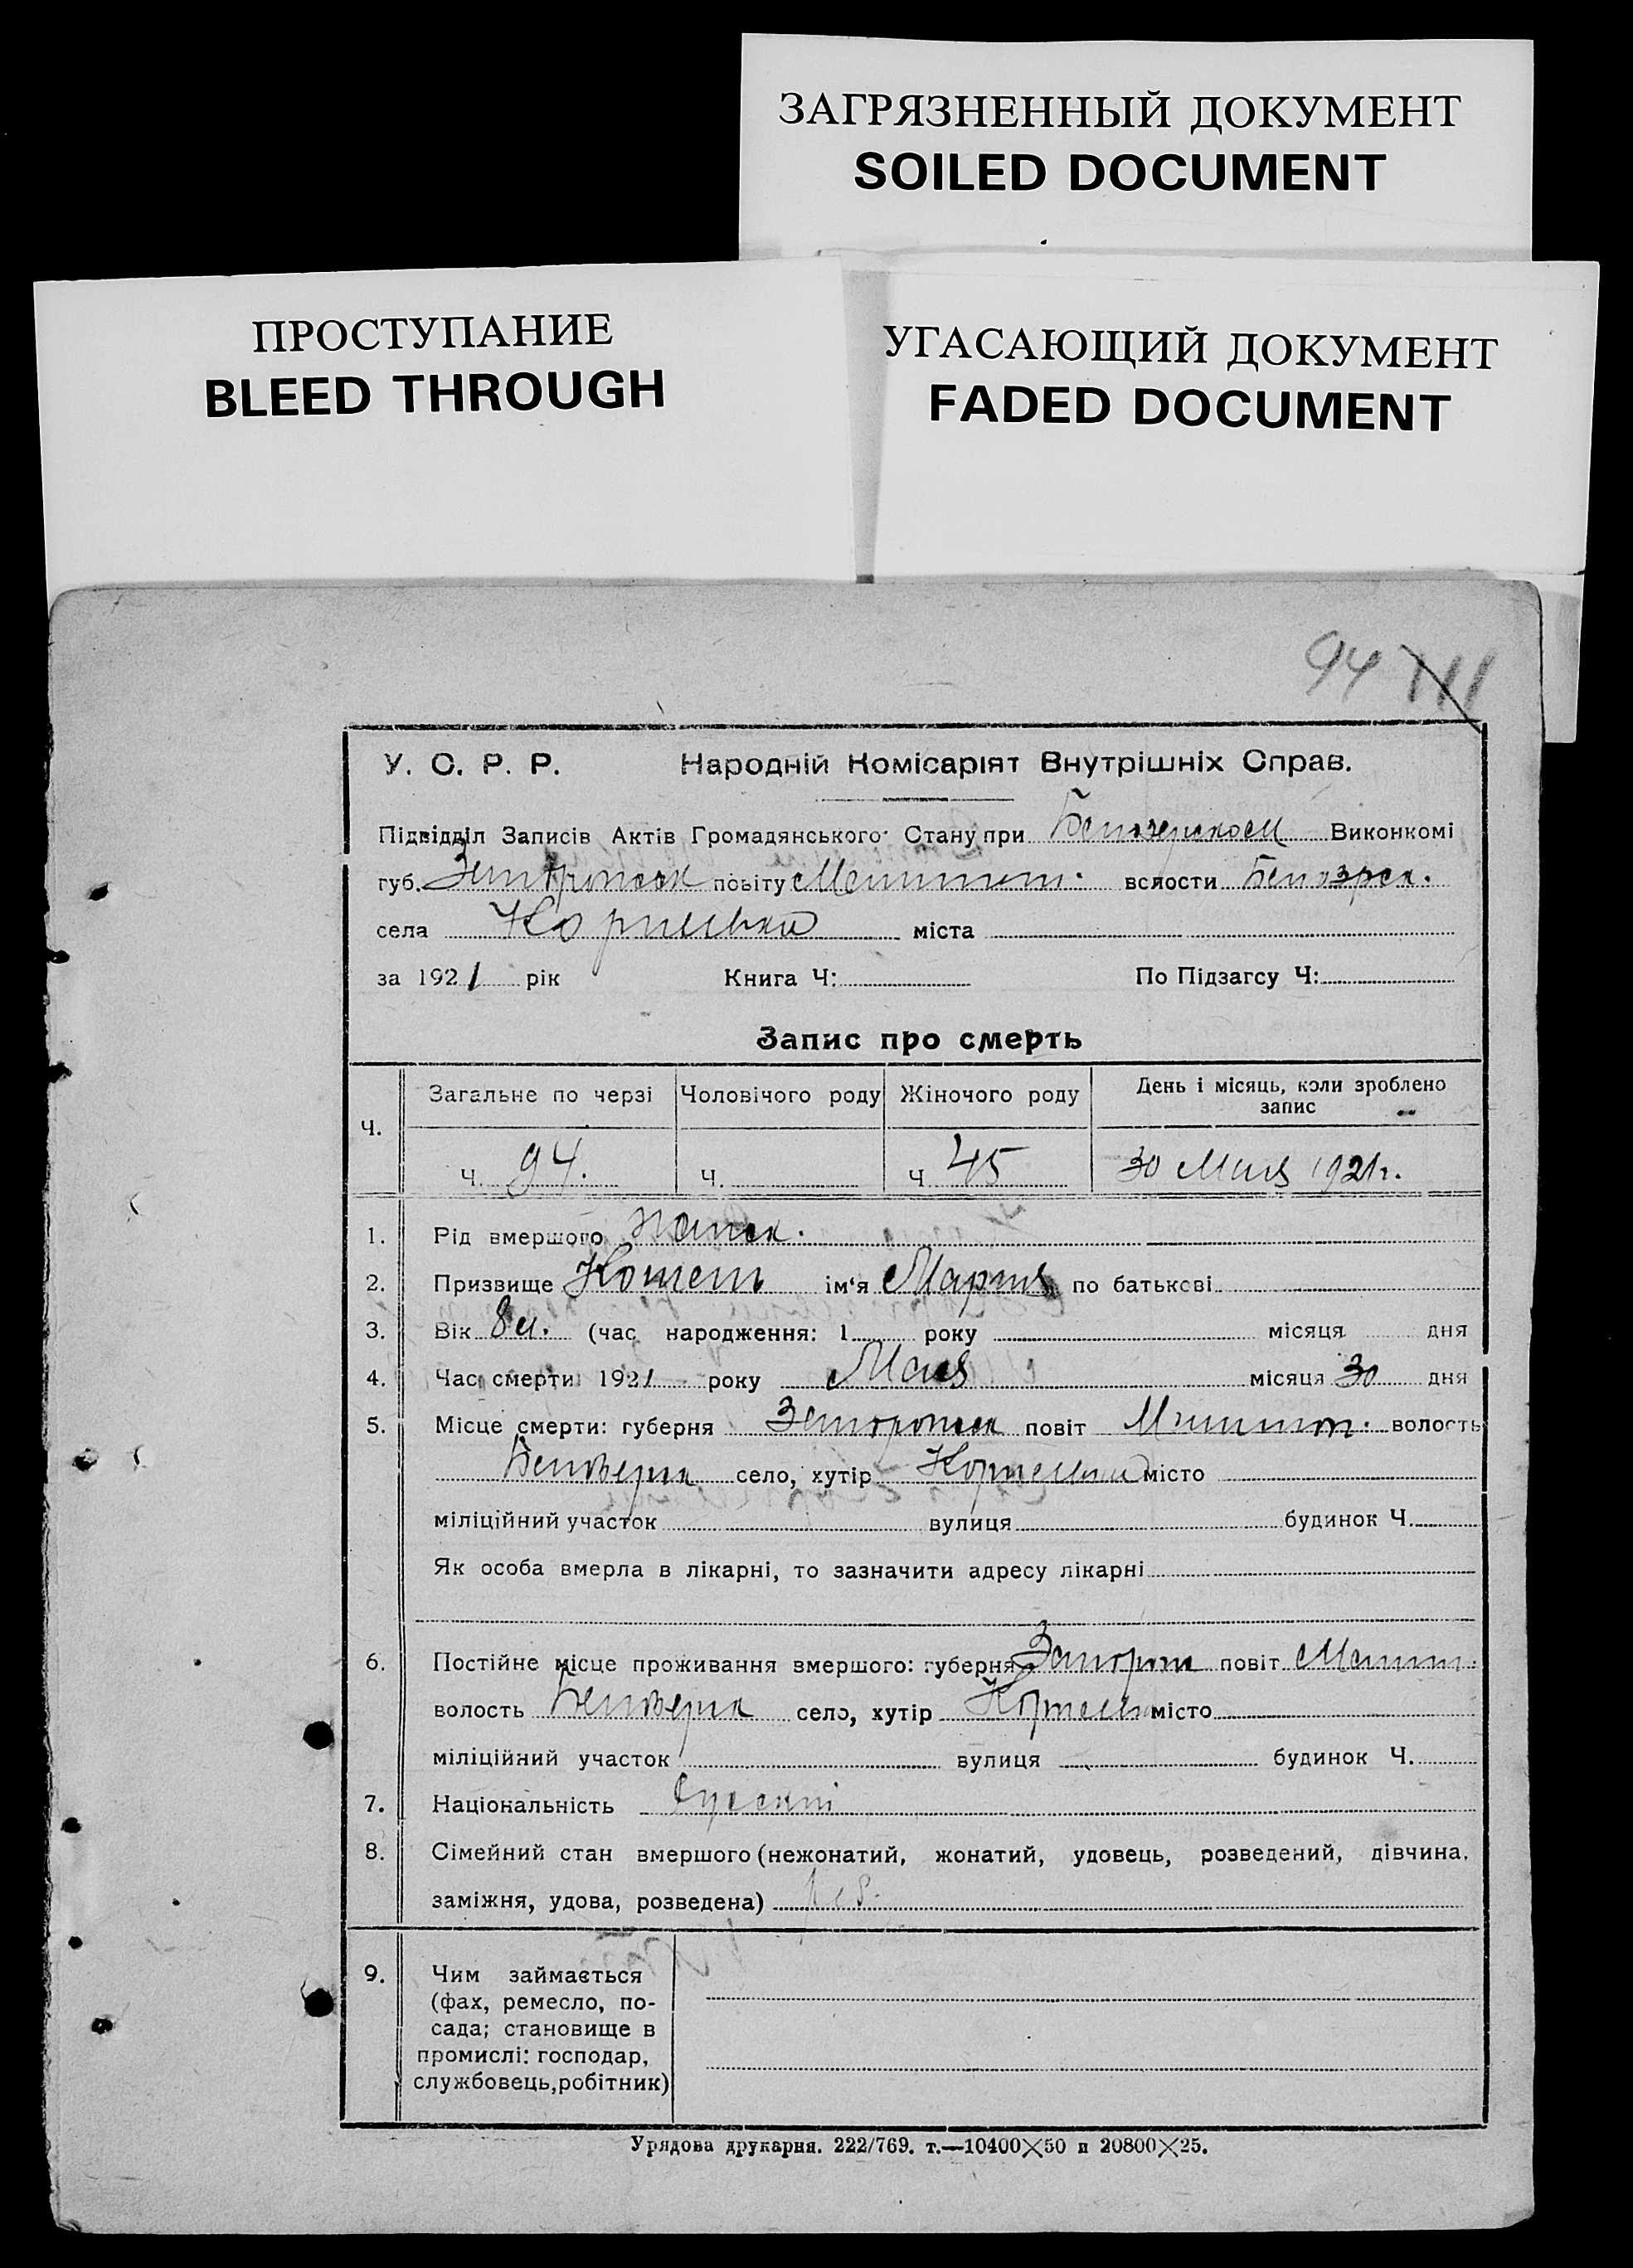 ЗАГРЯЗНЕННЫЙ ДОКУМЕНТ
SOILED DOCUMENT
ПРОСТУПАНИЕ
BLEED THROUGH
УГАСАЮЩИЙ ДОКУМЕНТ
FADED DOCUMENT
94 111
У. С. Р. Р. Народній Комісаріят Внутрішніх Справ.
Підвідділ Записів Актів Громадянського Стану при Виконкомі
губ. повіту Мелитоп. волости Белозерск.
села міста
за 1921 рік Книга Ч: По Підзагсу Ч:
Запис про смерть
Ч. Загальне по черзі Чоловічого роду Жіночого роду День і місяць, коли зроблено запис
Ч. 94. Ч. Ч 45 30 Мая 1921 г.
1. Рід вмершого женск.
2. Призвище ім'я Мария по батькові
3. Вік 8 м. (час народження: 1 року місяця дня
4. Час смерти 1921 року Мая місяця 30 дня
5. Місце смерти: губерня повіт Мелитоп. волость
Белозерск село, хутір місто
міліційний участок вулиця будинок Ч.
Як особа вмерла в лікарні, то зазначити адресу лікарні
6. Постійне місце проживання вмершого: губерня повіт Мелит.
волость Белозерск село, хутір місто
міліційний участок вулиця будинок Ч.
7. Національність Руский
8. Сімейний стан вмершого (нежонатий, жонатий, удовець, розведений, дівчина,
заміжня, удова, розведена)
9. Чим займається
(фах, ремесло, по-
сада; становище в
промислі: господар,
службовець, робітник)
Урядова друкарня. 222/769. т.—10400×50 п 20800×25.